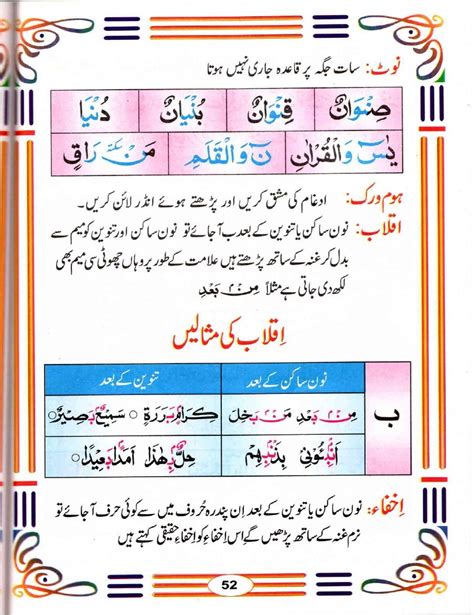 نوٹ: سات جگہ پر قاعدہ جاری نہیں ہوتا
صِنْوَانٌ قِنْوَانٌ بُنْيَانٌ دُنْيَا
يٰسٓ وَالْقُرْاٰنِ نٓ وَالْقَلَمِ مَنْ سكتة رَاقٍ
ہوم ورک: ادغام کی مشق کریں اور پڑھتے ہوئے انڈر لائن کریں۔
اقلاب: نون ساکن یا تنوین کے بعد ب آ جائے تو نون ساکن اور تنوین کو میم سے
بدل کر غنہ کے ساتھ پڑھیں علامت کے طور پر وہاں چھوٹی سی میم بھی
لکھ دی جاتی ہے مثلاً مِنْۢ بَعْدِ
اِقلاب کی مثالیں
نون ساکن کے بعد تنوین کے بعد
ب
مِنْۢ بَعْدِ مَنْۢ بَخِلَ كِرَامٍۭ بَرَرَةٍ ○ سَمِيْعٌۢ بَصِيْرٌ ○
اَنْۢبِئُوْنِيْ بِذَنْۢبِهِمْ حِلٌّۢ بِهٰذَا اَمَدًۢا بَعِيْدًا ○
اِخفاء: نون ساکن یا تنوین کے بعد اِن پندرہ حُروف میں سے کوئی حرف آ جائے تو
نرم غنہ کے ساتھ پڑھیں گے اِس اِخفاء کو اِخفاءِ حقیقی کہتے ہیں
52